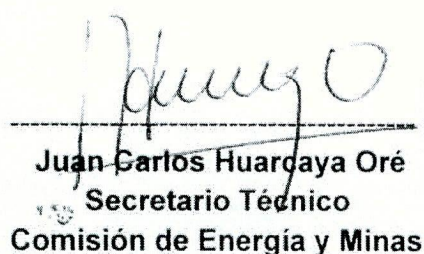 Juan Carlos Huarcaya Oré
Secretario Técnico
Comisión de Energía y Minas